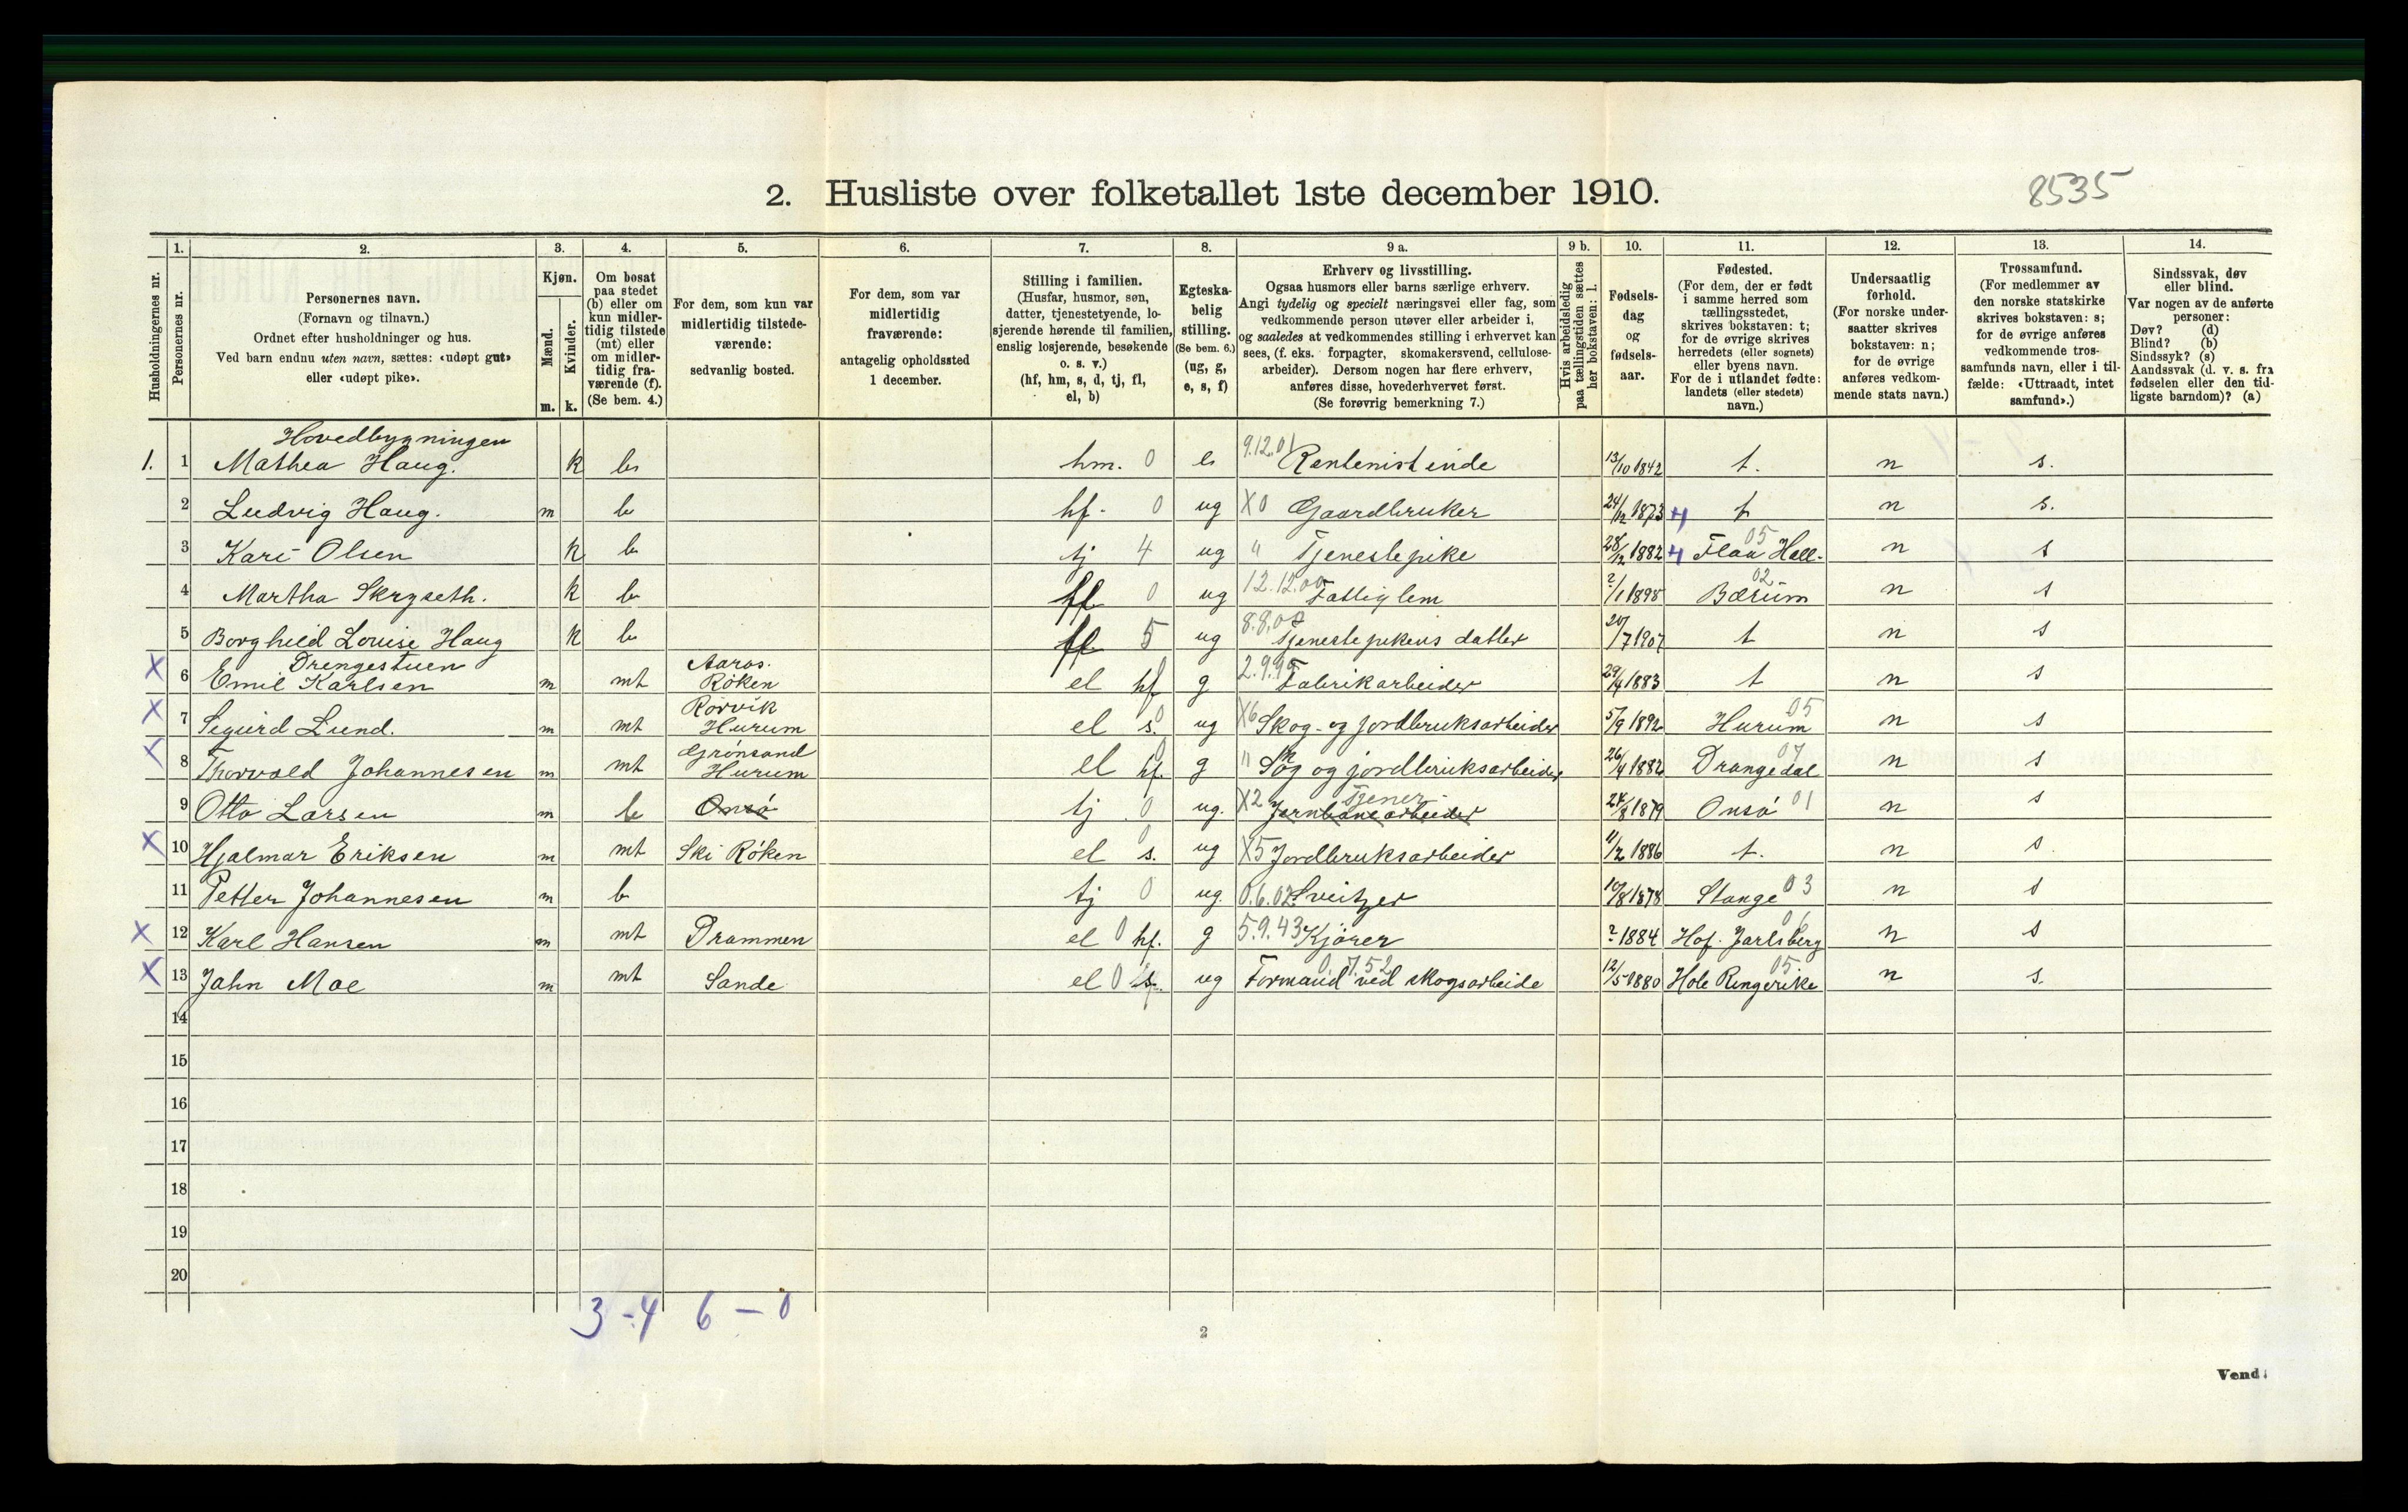 8535
2. Husliste over folketallet 1ste december 1910.
Husholdningernes nr.
1. Personernes nr.
2. Personernes navn.
(Fornavn og tilnavn.)
Ordnet efter husholdninger og hus.
Ved barn endnu uten navn, sættes: «udøpt gut»
eller «udøpt pike».
3. Kjøn.
Mænd. m.
Kvinder. k.
4. Om bosat
paa stedet
(b) eller om
kun midler-
tidig tilstede
(mt) eller
om midler-
tidig fra-
værende (f).
(Se bem. 4.)
5. For dem, som kun var
midlertidig tilstede-
værende:
sedvanlig bosted.
6. For dem, som var
midlertidig
fraværende:
antagelig opholdssted
1 december.
7. Stilling i familien.
(Husfar, husmor, søn,
datter, tjenestetyende, lo-
sjerende hørende til familien,
enslig losjerende, besøkende
o. s. v.)
(hf, hm, s, d, tj, fl,
el, b)
8. Egteska-
belig
stilling.
(Se bem. 6.)
(ug, g,
e, s, f)
9 a. Erhverv og livsstilling.
Ogsaa husmors eller barns særlige erhverv.
Angi tydelig og specielt næringsvei eller fag, som
vedkommende person utøver eller arbeider i,
og saaledes at vedkommendes stilling i erhvervet kan
sees, (f. eks. forpagter, skomakersvend, cellulose-
arbeider). Dersom nogen har flere erhverv,
anføres disse, hovederhvervet først.
(Se forøvrig bemerkning 7.)
9 b. Hvis arbeidsledig
paa tællingstiden sættes
her bokstaven: l.
10. Fødsels-
dag
og
fødsels-
aar.
11. Fødested.
(For dem, der er født
i samme herred som
tællingsstedet,
skrives bokstaven: t;
for de øvrige skrives
herredets (eller sognets)
eller byens navn.
For de i utlandet fødte:
landets (eller stedets)
navn.)
12. Undersaatlig
forhold.
(For norske under-
saatter skrives
bokstaven: n;
for de øvrige
anføres vedkom-
mende stats navn.)
13. Trossamfund.
(For medlemmer av
den norske statskirke
skrives bokstaven: s;
for de øvrige anføres
vedkommende tros-
samfunds navn, eller i til-
fælde: «Uttraadt, intet
samfund».)
14. Sindssvak, døv
eller blind.
Var nogen av de anførte
personer:
Døv? (d)
Blind? (b)
Sindssyk? (s)
Aandssvak (d. v. s. fra
fødselen eller den tid-
ligste barndom)? (a)
Hovedbygningen
1. 1 Mathea Haug. k b hm. 0 e 9.12.01 Rentenistinde 13/10 1842 t. n s.
2 Ludvig Haug. m b hf. 0 ug X0 Gaardbruker 24/12 1873 t n s.
3 Kari Olsen k b tj 4 ug " Tjenestepike 28/12 1882 Flaa Hall. 05 n s
4 Martha Skryseth. k b fl 0 ug 12.12.00 Fattiglem ?/1 1898 Bærum 02 n s
5 Borghild Louise Haug k b fl 5 ug 8.8.00 Tjenestepikens datter 20/7 1907 t n s
Drengestuen Aaros.
X 6 Emil Karlsen m mt Røken el hf g 2.9.99 Fabrikarbeider 29/4 1883 t n s
Rørvik
X 7 Sigurd Lund. m mt Hurum el s. 0 ug X6 Skog- og jordbruksarbeider 5/9 1892 Hurum 05 n s
Grønsand
X 8 Thorvald Johannesen m mt Hurum el hf. 0 g " Skog og jordbruksarbeider 26/4 1882 Drangedal 07 n s
9 Otto Larsen m b Onsø tj 0 ug. X2 Jernbanearbeider Tjener 24/8 1879 Onsø 01 n s
X 10 Hjalmar Eriksen m mt Ski Røken el s. 0 ug X5 Jordbruksarbeider 11/2 1886 t. n s.
11 Petter Johannesen m b tj 0 ug. 0.6.02 Sveitzer 10/8 1878 Stange 03 n s
X 12 Karl Hansen m mt Drammen el 0 hf. g 5.9.43 Kjører ? 1884 Hof. Jarlsberg 06 n s
X 13 Jahn Moe m mt Sande el 0 s. ug Formand ved skogsarbeide 0.7.52 12/5 1880 Hole Ringerike 05 n s.
14
15
16
17
18
19
20
3 - 4 6 - 0
2
Vend!